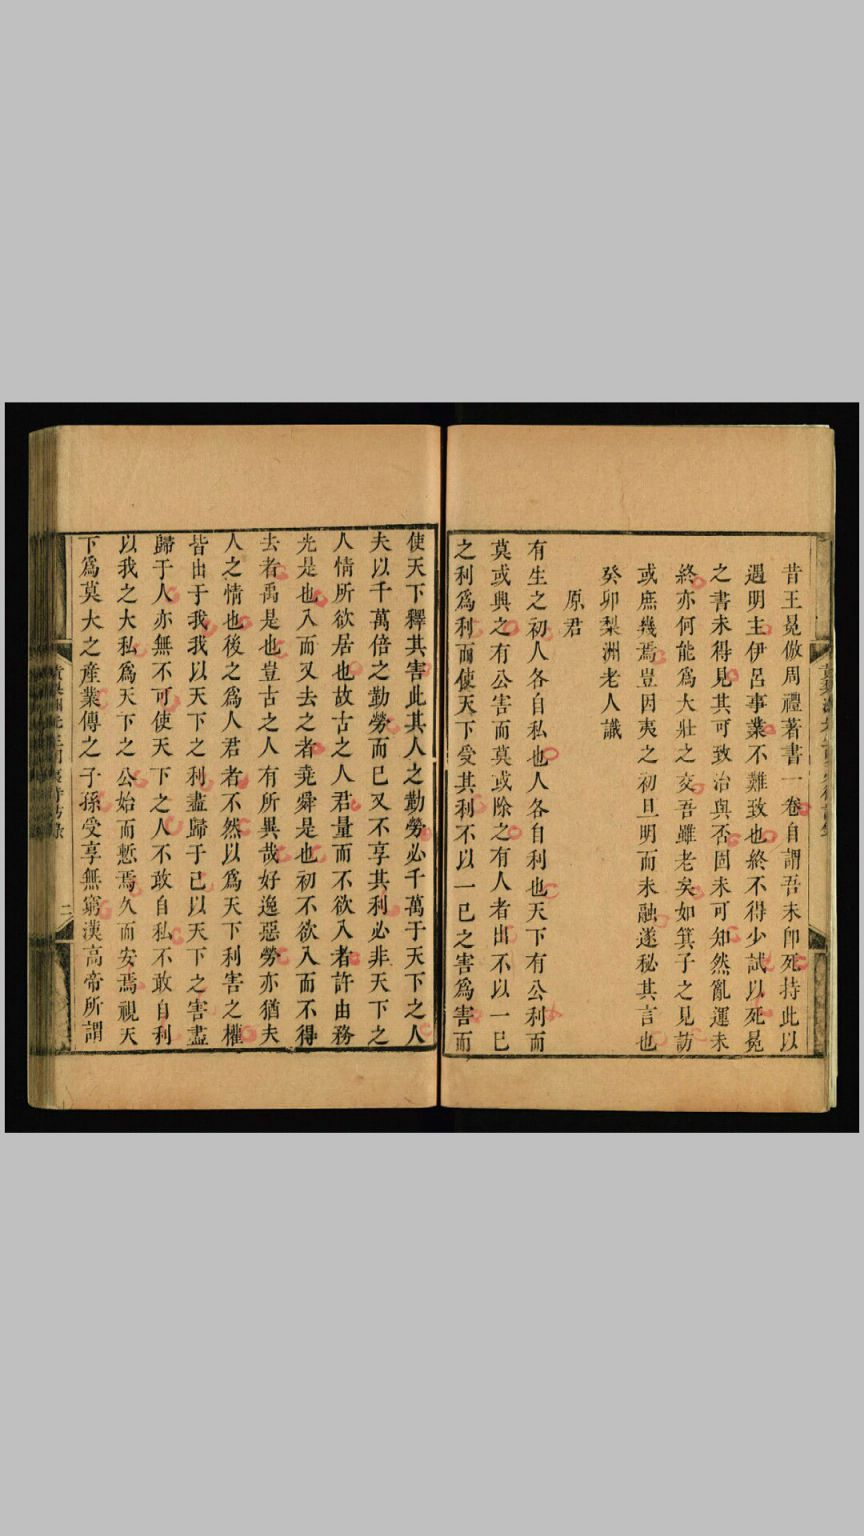 昔王冕倣周禮著書一卷自謂吾未卽死持此以
遇明主伊呂事業不難致也終不得少試以死冕
之書未得見其可致治與否固未可知然亂運未
終亦何能爲大壯之交吾雖老矣如箕子之見訪
或庶幾焉豈因夷之初旦明而未融遂秘其言也
癸卯梨洲老人識
原君
有生之初人各自私也人各自利也天下有公利而
莫或興之有公害而莫或除之有人者出不以一己
之利爲利而使天下受其利不以一己之害爲害而
使天下釋其害此其人之勤勞必千萬于天下之人
夫以千萬倍之勤勞而已又不享其利必非天下之
人情所欲居也故古之人君量而不欲入者許由務
光是也入而又去之者堯舜是也初不欲入而不得
去者禹是也豈古之人有所異哉好逸惡勞亦猶夫
人之情也後之爲人君者不然以爲天下利害之權
皆出于我我以天下之利盡歸于己以天下之害盡
歸于人亦無不可使天下之人不敢自私不敢自利
以我之大私爲天下之公始而慙焉久而安焉視天
下爲莫大之產業傳之子孫受享無窮漢高帝所謂
二